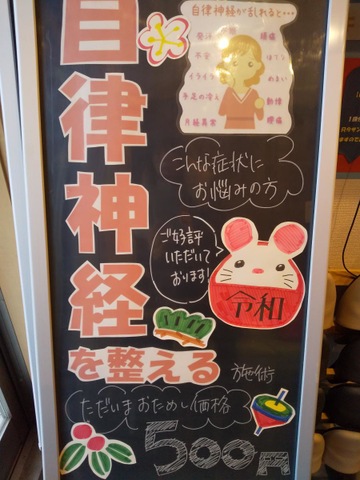 自律神経
を整える
施術
自律神経が乱れると…
発汗
頭痛
腰痛
不安
ほてり
イライラ
めまい
手足の冷え
動悸
月経異常
こんな症状に
お悩みの方
ご好評
いただいて
おります!
令和
ただいまおためし価格
500円